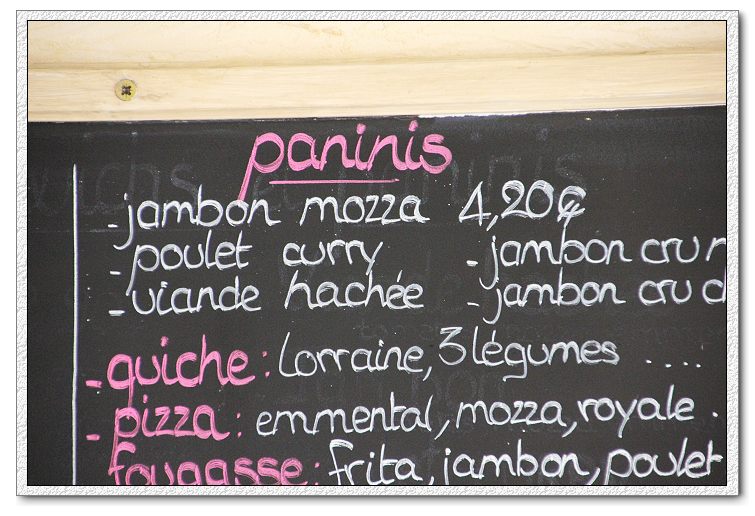 paninis
-jambon mozza 4,20€
-poulet curry -jambon cru
-viande hachée -jambon cru
-quiche : lorraine, 3 légumes ....
-pizza : emmental, mozza, royale .
fougasse : frita, jambon, poulet